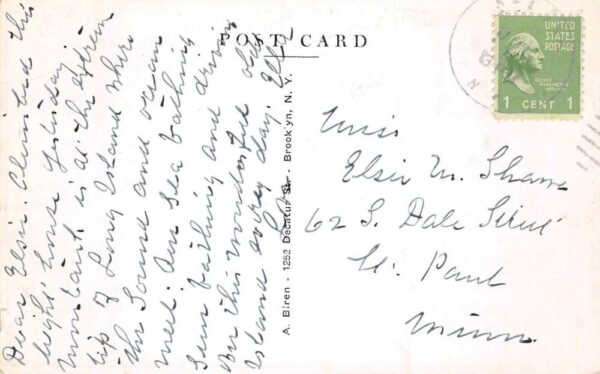 Dear Elsie. Climbed this
light house yesterday.
Montauk is at the extreme
tip of Long Island where
the Sound and ocean
meet. Am sea bathing
sun bathing and driving
on this wonderful old
Island every day.
POST CARD
A. Biren - 1252 Decatur Str. - Brook'yn, N. Y.
UNITED
STATES
POSTAGE
1 CENT 1
Miss
Elsie M. Shawe
62 S. Dale Street
St. Paul
Minn